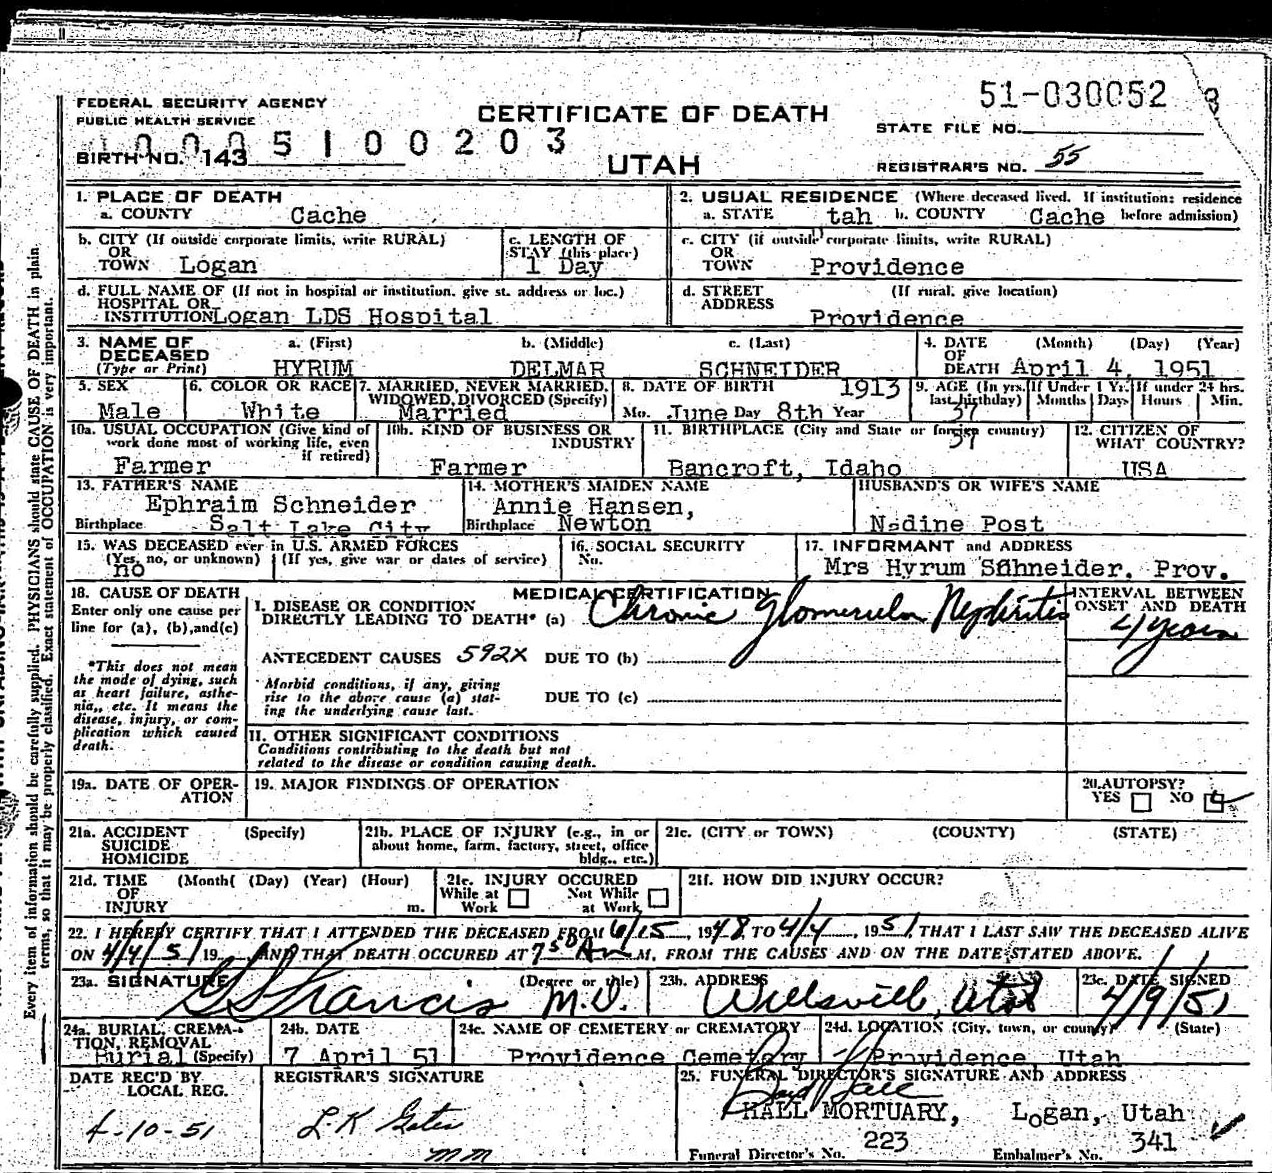 51-030052 3
FEDERAL SECURITY AGENCY
PUBLIC HEALTH SERVICE
CERTIFICATE OF DEATH
STATE FILE NO.
0005100203
BIRTH NO. 143
UTAH
REGISTRAR'S NO. 55
1. PLACE OF DEATH
a. COUNTY Cache
2. USUAL RESIDENCE (Where deceased lived. If institution: residence before admission)
a. STATE tah b. COUNTY Cache
b. CITY (If outside corporate limits, write RURAL)
OR
TOWN Logan
c. LENGTH OF
STAY (this place)
1 Day
c. CITY (if outside corporate limits, write RURAL)
OR
TOWN Providence
d. FULL NAME OF (If not in hospital or institution, give st. address or loc.)
HOSPITAL OR
INSTITUTION Logan LDS Hospital
d. STREET (If rural, give location)
ADDRESS
Providence
3. NAME OF
DECEASED
(Type or Print)
a. (First) b. (Middle) c. (Last)
HYRUM DELMAR SCHNEIDER
4. DATE (Month) (Day) (Year)
OF
DEATH April 4, 1951
5. SEX
Male
6. COLOR OR RACE
White
7. MARRIED, NEVER MARRIED,
WIDOWED, DIVORCED (Specify)
Married
8. DATE OF BIRTH 1913
Mo. June Day 8th Year
9. AGE (In yrs. last birthday)
37
If Under 1 Yr. Months Days
If under 24 hrs. Hours Min.
10a. USUAL OCCUPATION (Give kind of
work done most of working life, even
if retired)
Farmer
10b. KIND OF BUSINESS OR
INDUSTRY
Farmer
11. BIRTHPLACE (City and State or foreign country)
37
Bancroft, Idaho
12. CITIZEN OF
WHAT COUNTRY?
USA
13. FATHER'S NAME
Ephraim Schneider
Birthplace Salt Lake City
14. MOTHER'S MAIDEN NAME
Annie Hansen,
Birthplace Newton
HUSBAND'S OR WIFE'S NAME
Nadine Post
15. WAS DECEASED ever in U.S. ARMED FORCES
(Yes, no, or unknown) (If yes, give war or dates of service)
no
16. SOCIAL SECURITY
No.
17. INFORMANT and ADDRESS
Mrs Hyrum Schneider, Prov.
18. CAUSE OF DEATH
Enter only one cause per
line for (a), (b), and (c)
*This does not mean
the mode of dying, such
as heart failure, asthe-
nia, etc. It means the
disease, injury, or com-
plication which caused
death.
MEDICAL CERTIFICATION
I. DISEASE OR CONDITION
DIRECTLY LEADING TO DEATH* (a) Chronic Glomerular Nephritis
INTERVAL BETWEEN
ONSET AND DEATH
4 years
ANTECEDENT CAUSES 592X DUE TO (b)
Morbid conditions, if any, giving
rise to the above cause (a) stat-
ing the underlying cause last.
DUE TO (c)
II. OTHER SIGNIFICANT CONDITIONS
Conditions contributing to the death but not
related to the disease or condition causing death.
19a. DATE OF OPER-
ATION
19. MAJOR FINDINGS OF OPERATION
20. AUTOPSY?
YES NO
21a. ACCIDENT (Specify)
SUICIDE
HOMICIDE
21b. PLACE OF INJURY (e.g., in or
about home, farm, factory, street, office
bldg., etc.)
21c. (CITY or TOWN) (COUNTY) (STATE)
21d. TIME (Month( (Day) (Year) (Hour)
OF
INJURY m.
21e. INJURY OCCURED
While at Work Not While at Work
21f. HOW DID INJURY OCCUR?
22. I HEREBY CERTIFY THAT I ATTENDED THE DECEASED FROM 6/15, 1948 TO 4/4, 1951, THAT I LAST SAW THE DECEASED ALIVE
ON 4/4/51 19 AND THAT DEATH OCCURED AT 7 50 A M, FROM THE CAUSES AND ON THE DATE STATED ABOVE.
23a. SIGNATURE (Degree or title)
Francis M.D.
23b. ADDRESS
Wellsville, Utah
23c. DATE SIGNED
4/9/51
24a. BURIAL, CREMA-
TION, REMOVAL
Burial (Specify)
24b. DATE
7 April 51
24c. NAME OF CEMETERY or CREMATORY
Providence Cemetery
24d. LOCATION (City, town, or county) (State)
Providence Utah
DATE REC'D BY
LOCAL REG.
4-10-51
REGISTRAR'S SIGNATURE
L.K. Gates
mm
25. FUNERAL DIRECTOR'S SIGNATURE AND ADDRESS
HALL MORTUARY, Logan, Utah
Funeral Director's No. 223 Embalmer's No. 341
Every item of information should be carefully supplied. PHYSICIANS should state CAUSE OF DEATH in plain
terms, so that it may be properly classified. Exact statement of OCCUPATION is very important.